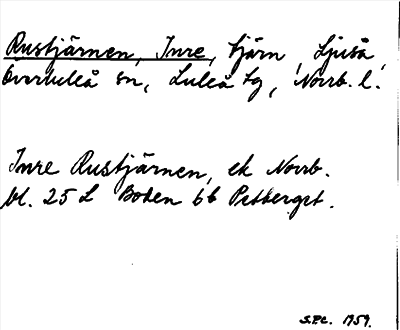 Rustjärnen, Inre, tjärn, Ljuså,
Överluleå sn, Luleå tg, Norrb. l.
Inre Rustjärnen, ek Norrb.
bl. 25 L Boden 6b Pesberget.
S.P.C. 1959.